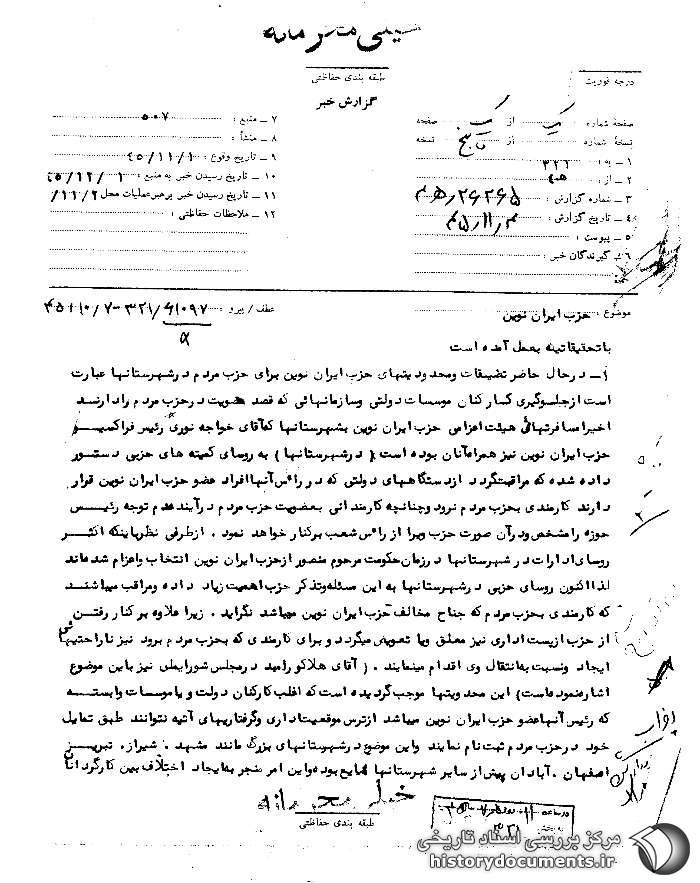 خیلی محرمانه
طبقه بندی حفاظتی
درجه فوریت
گزارش خبر
صفحهٔ شماره یک از یک صفحه
نسخهٔ شماره از پنج نسخه
۱ - به: ۳۲۱
۲ - از: ه‍۴
۳ - شماره گزارش:
۴ - تاریخ گزارش: ۴۵٫۱۱٫۳
۵ - پیوست:
۶ - گیرندگان خبر:
۷ - منبع: ۵۰۷
۸ - منشأ:
۹ - تاریخ وقوع: ۴۵/۱۱/۱
۱۰ - تاریخ رسیدن خبر به منبع:
۱۱ - تاریخ رسیدن خبر برهبر عملیات محل
۱۲ - ملاحظات حفاظتی:
موضوع: حزب ایران نوین
عطف / پیرو: ۶۱۰۹۷/۳۲۱-۴۵/۱۰/۷
باتحقیقاتیکه بعمل آمده است
۱- درحال حاضر تضییقات ومحدودیتهای حزب ایران نوین برای حزب مردم درشهرستانها عبارت
است ازجلوگیری کارکنان موسسات دولتی وسازمانهائی که قصد عضویت درحزب مردم رادارند
اخیرا مسافرتهائی هیئت اعزامی حزب ایران نوین بشهرستانها که آقای خواجه نوری رئیس فراکسیون
حزب ایران نوین نیز همراه آنان بوده است (درشهرستانها) به روسای کمیته های حزبی دستور
داده شده که مراقبت گردد ازدستگاههای دولتی که در راس آنها افراد عضو حزب ایران نوین قرار
دارند کارمندی بحزب مردم نرود وچنانچه کارمندانی بعضویت حزب مردم درآیند عدم توجه رئیس
حوزه را مشخص ودرآن صورت حزب ویرا از راس شعب برکنار خواهد نمود . ازطرفی نظرباینکه اکثر
روسای ادارات درشهرستانها درزمان حکومت مرحوم منصور ازحزب ایران نوین انتخاب واعزام شده اند
لذا اکنون روسای حزبی درشهرستانها به این مسئله وتذکر حزب اهمیت زیاد داده ومراقب میباشند
که کارمندی بحزب مردم که جناح مخالف حزب ایران نوین میباشد نگراید . زیرا علاوه برکنار رفتن
از حزب ازپست اداری نیز معلق ویا تعویض میگردد و برای کارمندی که بحزب مردم برود نیز ناراحتیهائی
ایجاد ونسبت به انتقال وی اقدام مینمایند . (آقای هلاکو رامبد درمجلس شورایملی نیز باین موضوع
اشاره نموده است) این محدودیتها موجب گردیده است که اغلب کارکنان دولت و یا موسسات وابسته
که رئیس آنها عضو حزب ایران نوین میباشد ازترس موقعیت اداری وگرفتاریهای آتیه نتوانند طبق تمایل
خود درحزب مردم ثبت نام نمایند واین موضوع درشهرستانهای بزرگ مانند مشهد . شیراز . تبریز
اصفهان . آبادان پیش از سایر شهرستانها شایع بوده واین امر منجر به ایجاد اختلاف بین کارگردانان
خیلی محرمانه
طبقه بندی حفاظتی
مرکز بررسی اسناد تاریخی
historydocuments.ir